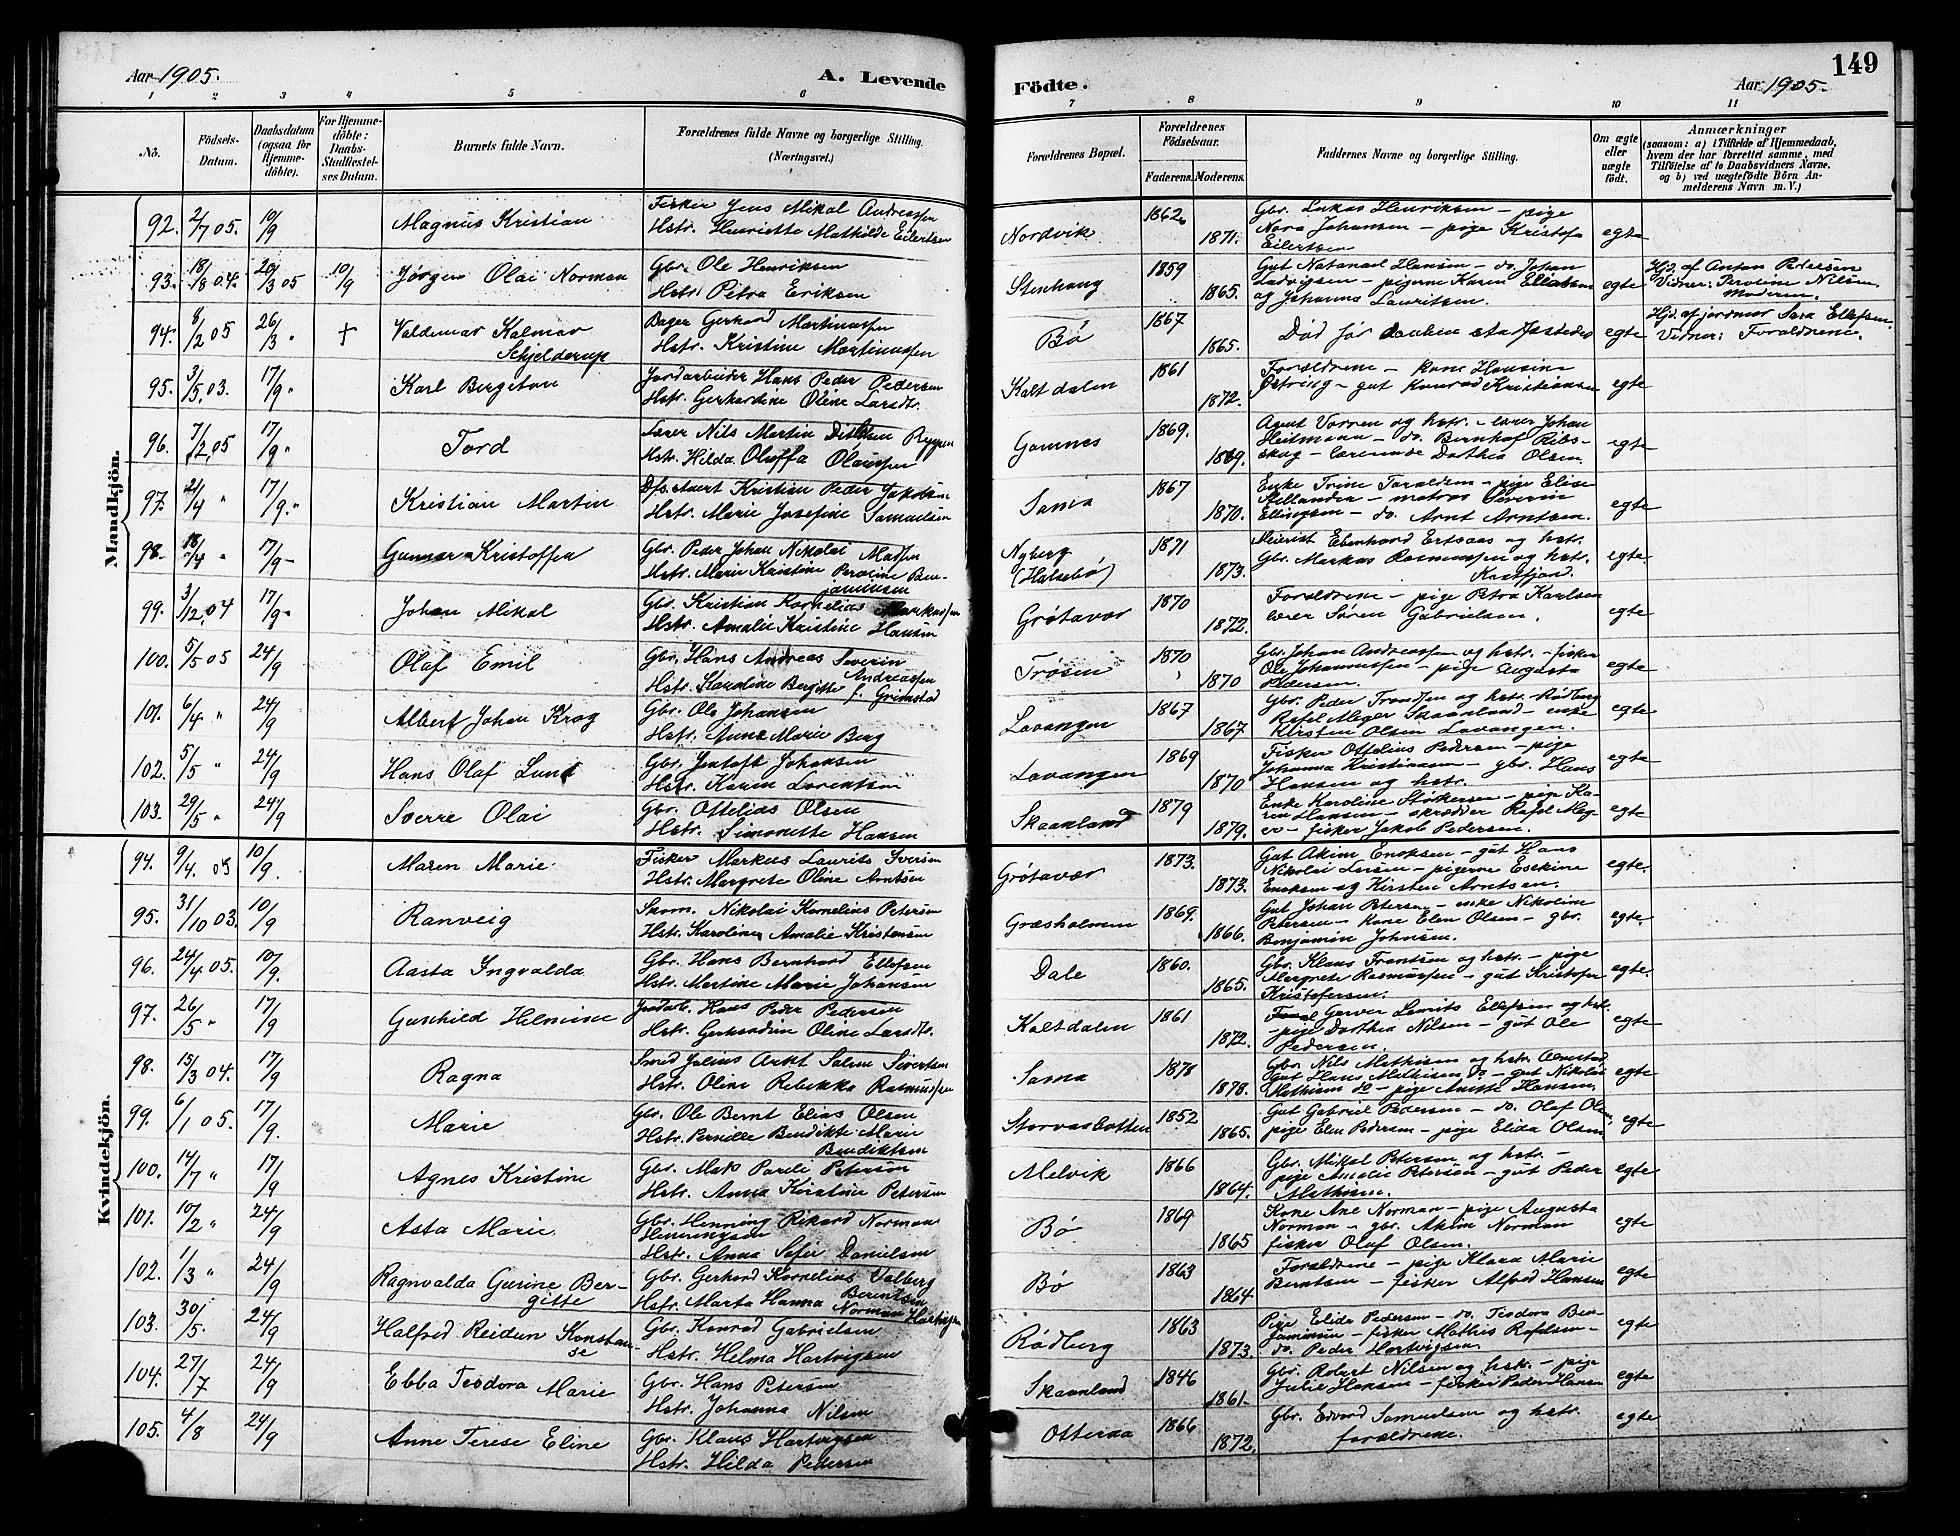 Aar 1905.
A. Levende
1 2 3 4 5 6
No.
Födsels-Datum.
Daabsdatum (ogsaa for Hjemme-döbte).
For Hjemme-döbte: Daabs-Stadfæstel-ses Datum.
Barnets fulde Navn.
Forældrenes fulde Navne og borgerlige Stilling. (Næringsvei.)
Mandkjön.
92. 2/7 05. 10/9 Magnus Kristian Fisker Jens Mikal Andreassen
Hstr. Henriette Mathilde Eilertsen
93. 18/8 04. 20/3 05 10/9 Jørgen Olai Norman Gbr. Ole Henriksen
Hstr. Petra Eriksen
94. 8/2 05 26/3 " † Valdemar Kalmar Schjelderup Bager Gerhard Martinussen
Hstr. Kristine Martinussen
95. 3/5 03. 17/9 " Karl Bergiton Jordarbeider Hans Peder Pedersen
Hstr. Gerhardine Oline Larsdtr.
96. 7/2 05 17/9 " Tord Lærer Nils Martin Ditlefsen Ryggen
Hstr. Hilda Oluffa Olaussen
97. 2/4 " 17/9 " Kristian Martin Kristian Peder Jakobsen
Hstr. Marie Josefine Samuelsen
98. 18/4 " 17/9 - Gunnar Kristoffer Gbr. Peder Johan Nikolai Madsen
Hstr. Marie Kristine Peroline Ben-
jaminsen
99. 3/12 04 17/9 " Johan Mikal Gbr. Kristian Kornelius Markussen
Hstr. Amalie Kristine Hansen
100. 5/5 05 24/9 Olaf Emil Gbr. Hans Andreas Severin
Andreassen
Hstr. Karoline Bergitte f. Grimstad
101. 6/4 " 24/9 Albert Johan Krog Gbr. Ole Johansen
Hstr. Anne Marie Berg
102. 5/5 " 24/9 Hans Olaf Lund Gbr. Jentoft Johansen
Hstr. Karen Lorentsen
103. 29/5 " 24/9 Sverre Olai Gbr. Ottelias Olsen
Hstr. Simonette Hansen
Kvindekjön.
94. 9/4 05 10/9. Maren Marie Fisker Markus Laurits Iversen
Hstr. Margrete Oline Arntsen
95. 31/10 03. 10/9 Ranveig Skom. Nikolai Kornelius Petersen
Hstr. Karoline Amalie Kristensen
96. 24/4 05. 10/9. Aasta Ingvalda Gbr. Hans Bernhard Ellefsen
Hstr. Martine Marie Johansen
97. 26/5 " 17/9 Gunhild Helmine Jordarb. Hans Peder Pedersen
Hstr. Gerhardine Oline Larsdtr.
98. 15/3 04. 17/9 Ragna Smed Julius Arkt Salem Sivertsen
Hstr. Oline Rebekka Rasmussen
99. 6/1 05. 17/9. Marie Gbr. Ole Bernt Elias Olsen
Hstr. Pernille Bendikte Marie
Bendiktsen
100. 14/7 " 17/9 Agnes Kristine Gbr. Maks Pareli Peterson
Hstr. Anna Kirstine Petersen
101. 10/2 " 24/9 Asta Marie Gbr. Henning Rikard Norman
Henningsen
Hstr. Anna Sofie Danielsen
102. 1/3 " 24/9 Ragnvalda Gurine Ber-
gitte Gbr. Gerhard Kornelius Valberg
Berentsen
Hstr. Marta Hanna Norman Hartvigsen
103. 30/5. 24/9 Halfrid Reidun Konstan-
se Gbr. Konrad Gabrielsen
Hstr. Helma Hartvigsen
104. 27/7 24/9 Ebba Teodora Marie Gbr. Hans Petersen
Hstr. Johanna Nilsen
105. 4/8 24/9 Anne Terese Eline Gbr. Klaus Hartvigsen
Hstr. Hilda Pedersen
149
Födte.
Aar 1905.
7 8 9 10 11
Forældrenes Bopæl.
Forældrenes Födselsaar.
Faderens. Moderens.
Faddernes Navne og borgerlige Stilling.
Om ægte eller uægte födt.
Anmærkninger
(saasom: a) i Tilfælde af Hjemmedaab,
hvem der har forrettet samme, med
Tilföielse af to Daabsvidners Navne,
og b) ved uægtefödte Börn An-
melderens Navn m. V.)
Nordvik 1862 1871. Gbr. Lukas Henriksen - pige
Nora Johansen - pige Kristofa
Eilertsen egte
Stenhaug 1859 1865. Gut Natanael Hansen - do. Johan
Ludvigsen - pigerne Karen Eliassen
og Johanna Lauritsen. egte Hjd. af Anton Pedersen
Vidner: Peroline Nilsen
Moderen.
Bø 1867 1865. Død før daaben stadfæstedes egte Hjd. af jordmor Sara Ellefsen.
Vidner: Forældrene.
Kaltdalen 1861 1872. Forældrene - kone Hansine
Østring - gut Konrad Kristiansen egte
Gamnes 1869. 1869. Agent Vorren og hstr. - lærer Johan
Heitmann - do. Bernhof Ribs-
skog - lærerinde Dorthea Olsen. egte
Sama 1867 1870. Enke Trine Toraldsen - pige Elise
Mellander - matros Severin
Ellingsen - do. Arnt Arntsen. egte
Nyberg
(Halsebø) 1871 1873. Meierist Ebenhard Ertsaas og hstr.
Gbr. Markus Rasmussen og hstr.
Kastfjord. egte
Grøtavær 1870 1872. Forældrene - pige Petra Karlsen
lærer Søren Gabrielsen. egte
Trøsen 1870 1870 Gbr. Johan Andreassen og hstr. - fisker
Ole Johannessen - pige Augusta
Pedersen. egte
Lavangen 1867 1867 Gbr. Peder Trondsen og hstr. Rødberg
Rafel Meger Skaanland - enke
Kirsten Olsen Lavangen. egte
Lavangen 1869 1870 Fisker Ottelius Pedersen - pige
Johanna Kristiansen - gbr. Hans
Hansen og hstr. egte
Skaanland 1879 1879. Enke Karoline Størkersen - pige Ka-
ren Hansen - skrædder Rafel Meg-
er - fisker Jakob Pedersen. egte
Grøtavær 1873. 1873. Gut Akim Enoksen - gut Hans
Nikolai Larsen - pigerne Eskine
Enoksen og Kirsten Arntsen. egte.
Græsholmen 1869. 1866. Gut Johan Petersen - enke Nikoline
Petersen - kone Elen Olsen - gbr.
Benjamin Johnsen. egte
Dale 1860. 1865. Gbr. Klaus Frantsen og hstr. - pige
Margrete Rasmussen - gut Kristofer
Kristofersen. egte
Kaltdalen 1861 1872. Garver Laurits Ellefsen og hstr.
- pige Dorthea Nilsen - gut Ole
Pedersen. egte
Sama 1878 1878. Gbr. Nils Mathisen og hstr.
gut Hans Mathisen do - gut Nikolai
Mathisen do - pige Anette Hansen. egte
Storvasbotten 1852 1865. Gut Gabriel Pedersen - do. Olaf Olsen
pige Elen Pedersen - pige Elida Olsen. egte
Melvik 1866 1864. Gbr. Mikal Petersen og hstr. -
pige Amalie Petersen - gut Peder
Mathisen. egte
Bø 1869 1865 Kone Ane Norman - pige Augusta
Norman - gbr. Akim Norman
fisker Olaf Olsen. egte
Bø 1863 1864 Forældrene - pige Klara Marie
Berntsen - fisker Alfred Hansen egte
Rødberg 1863 1873. Pige Elida Pedersen - do. Teodora Ben-
jaminsen - fisker Mathis Rafelsen -
do. Peder Hartvigsen. egte
Skaanland 1846 1861- Gbr. Robert Nilsen og hstr. - pige
Julie Hansen - fisker Peder Hansen egte
Otteraa 1866 1872. Gbr. Edvard Samuelsen og hstr.
forældrene. egte